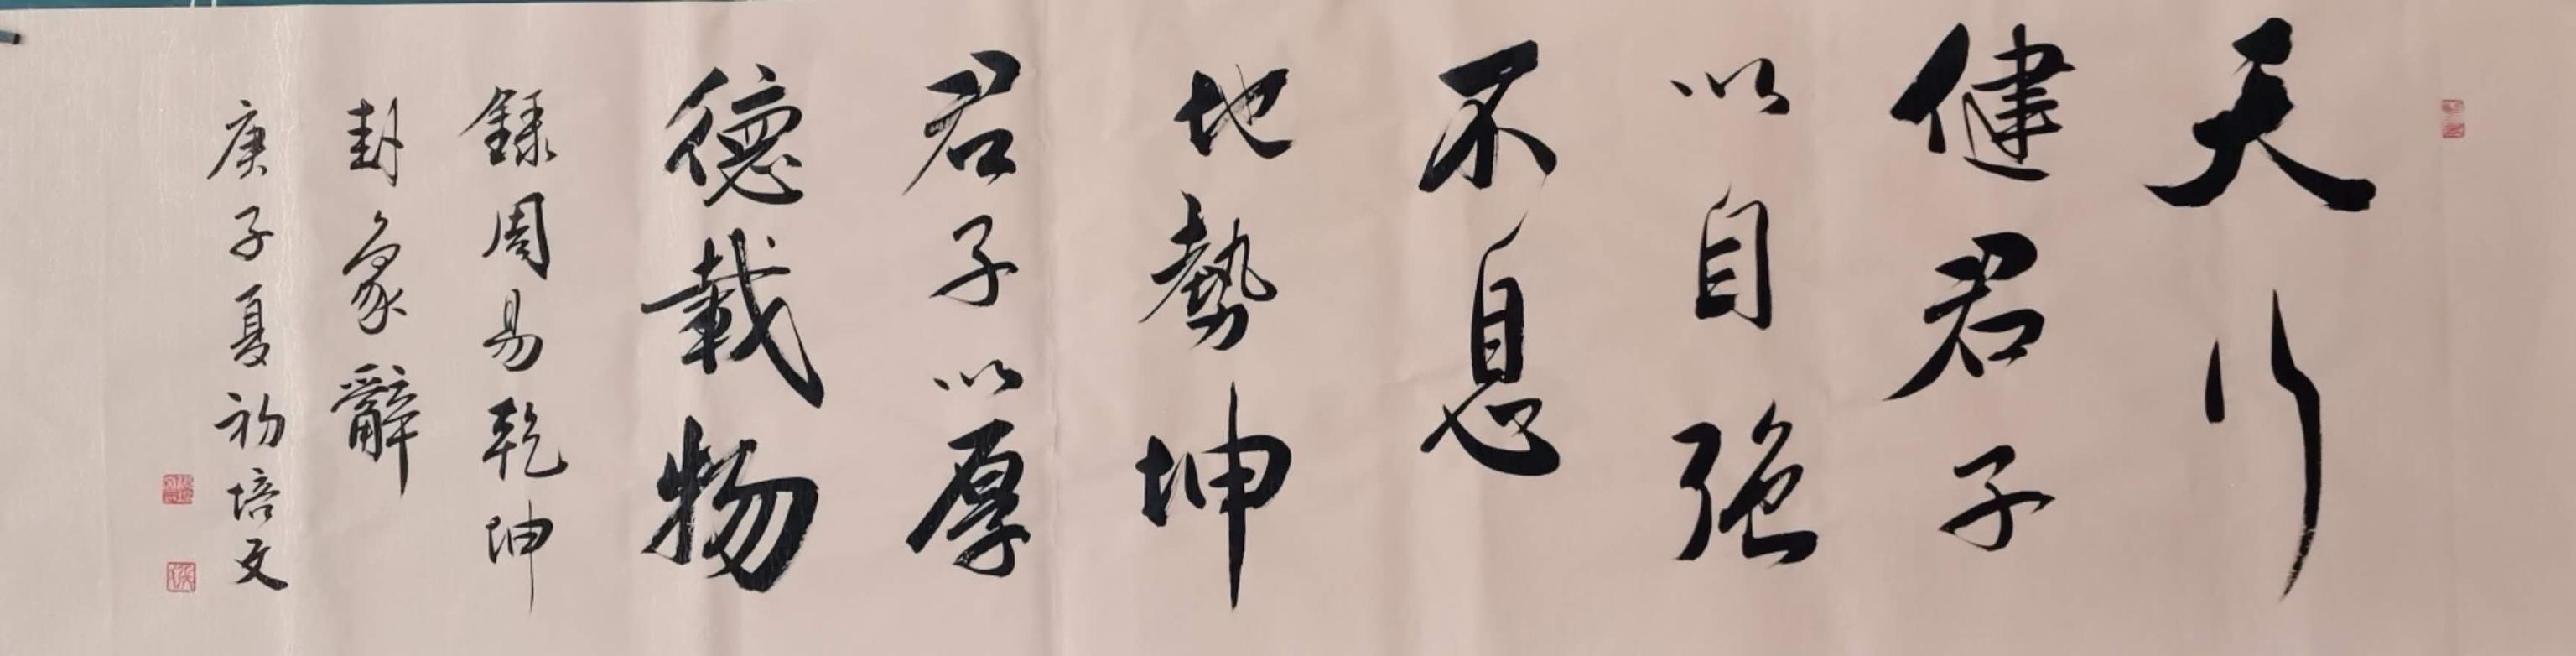 天行
健君子
以自强
不息
地勢坤
君子以厚
德載物
録周易乾坤
卦象辭
庚子夏初培文